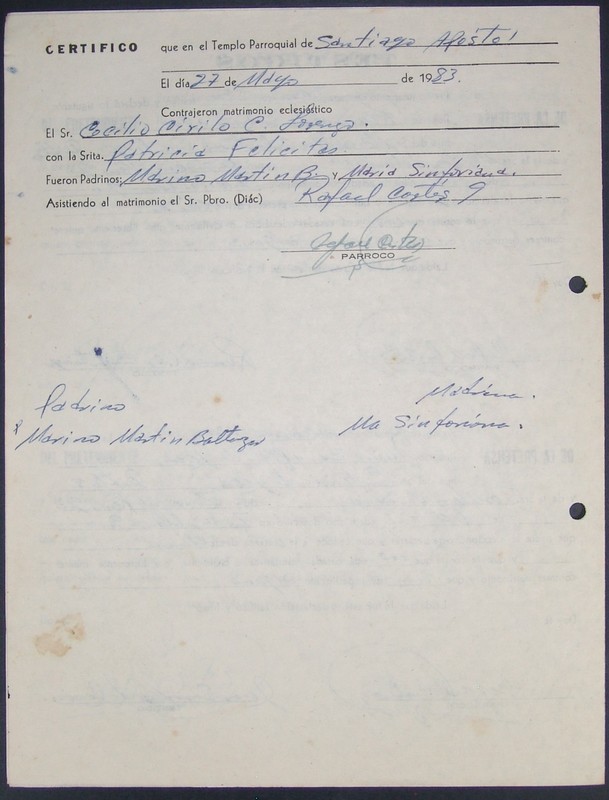 CERTIFICO que en el Templo Parroquial de Santiago Apóstol
El día 27 de Mayo de 1983.
Contrajeron matrimonio eclesiástico
El Sr. Cecilio Cirilo C. Lorenzo.
con la Srita. Patricia Felicitas.
Fueron Padrinos: Marino Martin B. y Maria Sinforiana.
Asistiendo al matrimonio el Sr. Pbro. (Diác) Rafael Cortes G
PARROCO
Padrino Madrina.
Marino Martin Baltazar Ma Sinforiana.